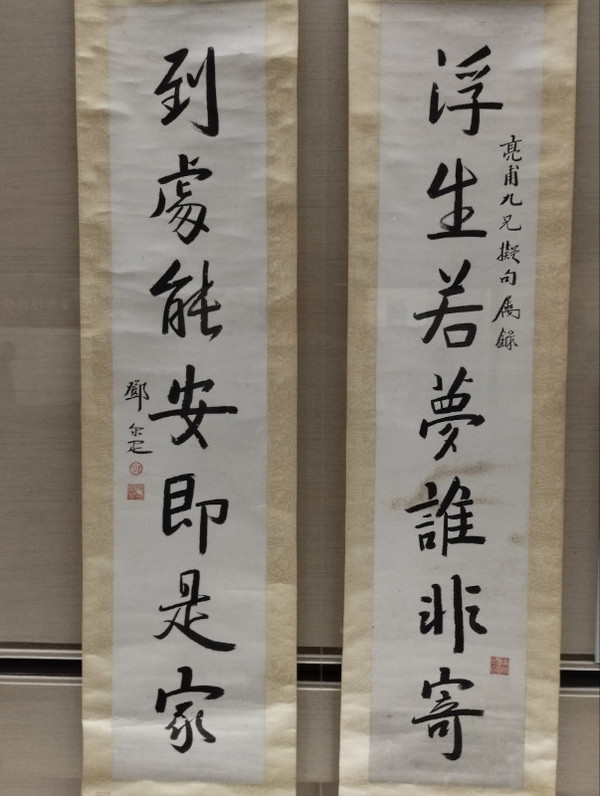 浮生若夢誰非寄
亮甫九兄擬句屬錄
到處能安即是家
鄧尔疋